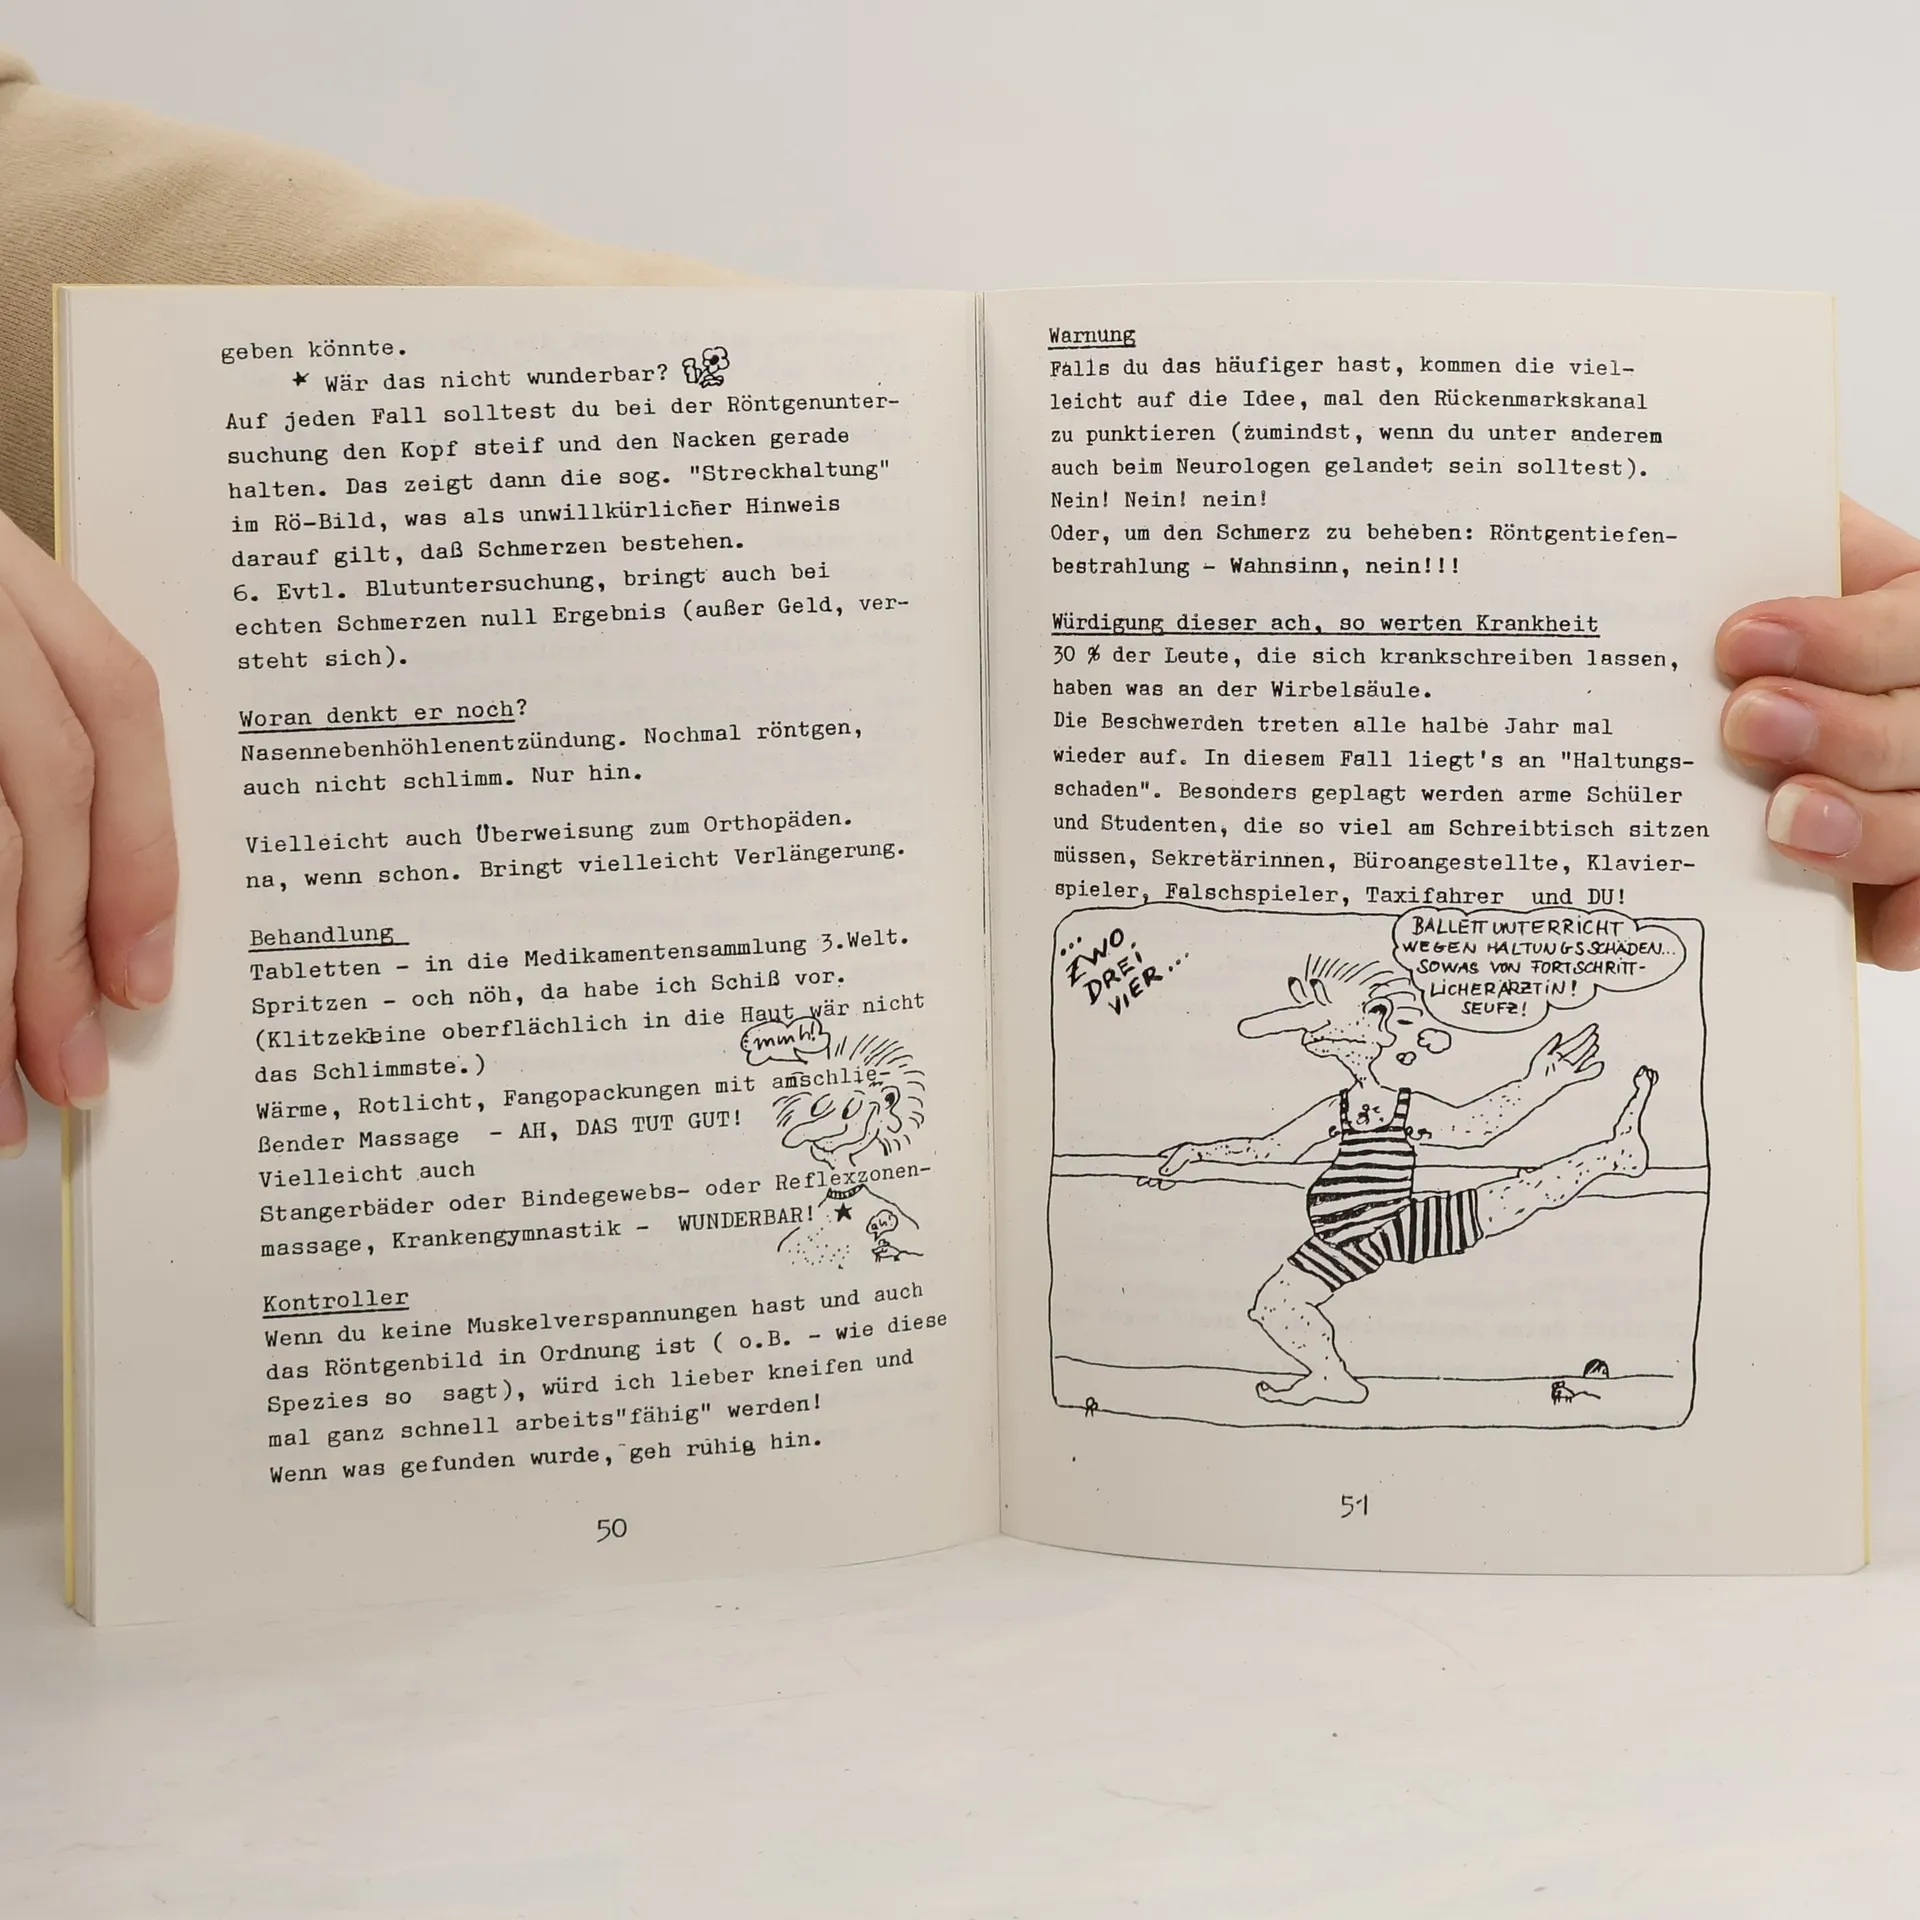 geben könnte.
★ Wär das nicht wunderbar?
Auf jeden Fall solltest du bei der Röntgenunter-
suchung den Kopf steif und den Nacken gerade
halten. Das zeigt dann die sog. "Streckhaltung"
im Rö-Bild, was als unwillkürlicher Hinweis
darauf gilt, daß Schmerzen bestehen.
6. Evtl. Blutuntersuchung, bringt auch bei
echten Schmerzen null Ergebnis (außer Geld, ver-
steht sich).
Woran denkt er noch?
Nasennebenhöhlenentzündung. Nochmal röntgen,
auch nicht schlimm. Nur hin.
Vielleicht auch Überweisung zum Orthopäden.
na, wenn schon. Bringt vielleicht Verlängerung.
Behandlung
Tabletten - in die Medikamentensammlung 3.Welt.
Spritzen - och nöh, da habe ich Schiß vor.
(Klitzekleine oberflächlich in die Haut wär nicht
das Schlimmste.)
mmh!
Wärme, Rotlicht, Fangopackungen mit anschlie-
ßender Massage - AH, DAS TUT GUT!
Vielleicht auch
Stangerbäder oder Bindegewebs- oder Reflexzonen-
massage, Krankengymnastik - WUNDERBAR! ★
ah!
Kontroller
Wenn du keine Muskelverspannungen hast und auch
das Röntgenbild in Ordnung ist ( o.B. - wie diese
Spezies so sagt), würd ich lieber kneifen und
mal ganz schnell arbeits"fähig" werden!
Wenn was gefunden wurde, geh ruhig hin.
50
Warnung
Falls du das häufiger hast, kommen die viel-
leicht auf die Idee, mal den Rückenmarkskanal
zu punktieren (zumindst, wenn du unter anderem
auch beim Neurologen gelandet sein solltest).
Nein! Nein! nein!
Oder, um den Schmerz zu beheben: Röntgentiefen-
bestrahlung - Wahnsinn, nein!!!
Würdigung dieser ach, so werten Krankheit
30 % der Leute, die sich krankschreiben lassen,
haben was an der Wirbelsäule.
Die Beschwerden treten alle halbe Jahr mal
wieder auf. In diesem Fall liegt's an "Haltungs-
schaden". Besonders geplagt werden arme Schüler
und Studenten, die so viel am Schreibtisch sitzen
müssen, Sekretärinnen, Büroangestellte, Klavier-
spieler, Falschspieler, Taxifahrer und DU!
...
ZWO,
DREI
VIER...
BALLETTUNTERRICHT
WEGEN HALTUNGSSCHÄDEN...
SOWAS VON FORTSCHRITT-
LICHER ÄRZTIN!
SEUFZ!
51